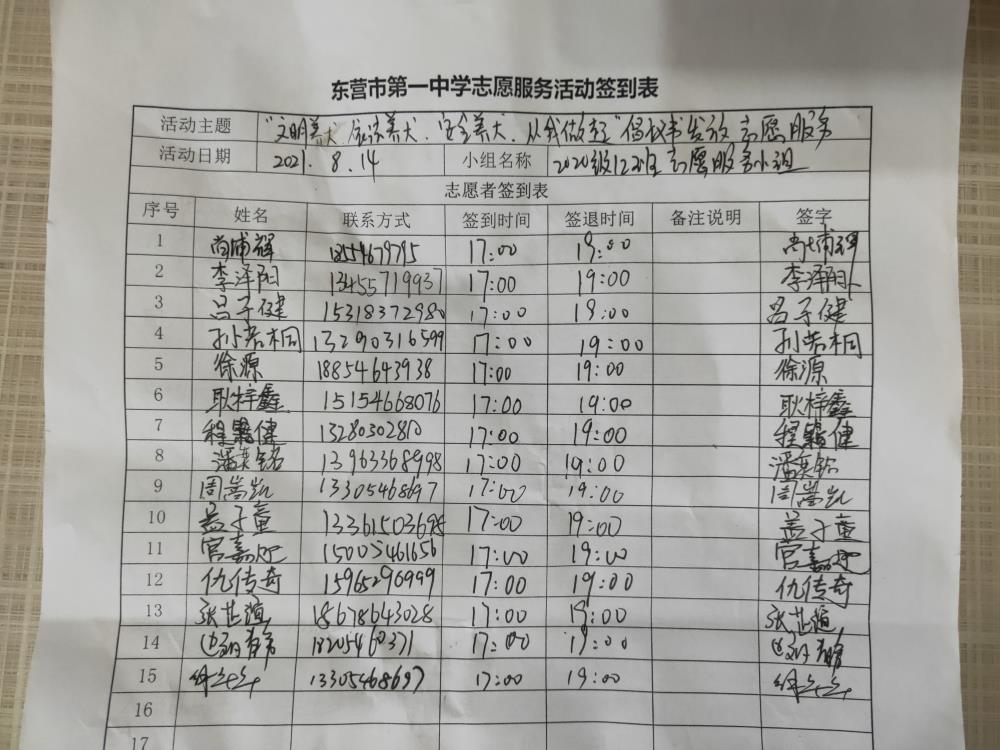 东营市第一中学志愿服务活动签到表
活动主题 "文明养犬 依法养犬、安全养犬、从我做起"倡议书发放志愿服务
活动日期 2021.8.14 小组名称 2020级12班志愿服务小组
志愿者签到表
序号 姓名 联系方式 签到时间 签退时间 备注说明 签字
1 尚浦辉 17:00 19:00 尚浦辉
2 李泽阳 13455719937 17:00 19:00 李泽阳
3 吕子健 15318372980 17:00 19:00 吕子健
4 孙若桐 13290316599 17:00 19:00 孙若桐
5 徐源 18854643938 17:00 19:00 徐源
6 耿梓鑫 15154668076 17:00 19:00 耿梓鑫
7 程 健 13280302810 17:00 19:00 程 健
8 潘奕铭 13963368998 17:00 19:00 潘奕铭
9 周嵩凯 13305468697 17:00 19:00 周嵩凯
10 孟子童 13361503698 17:00 19:00 孟子童
11 官嘉 15005461656 17:00 19:00 官嘉
12 仇传奇 15965296999 17:00 19:00 仇传奇
13 张芷 18678643028 17:00 19:00 张芷
14 17:00 19:00
15 13305468697 17:00 19:00
16
17